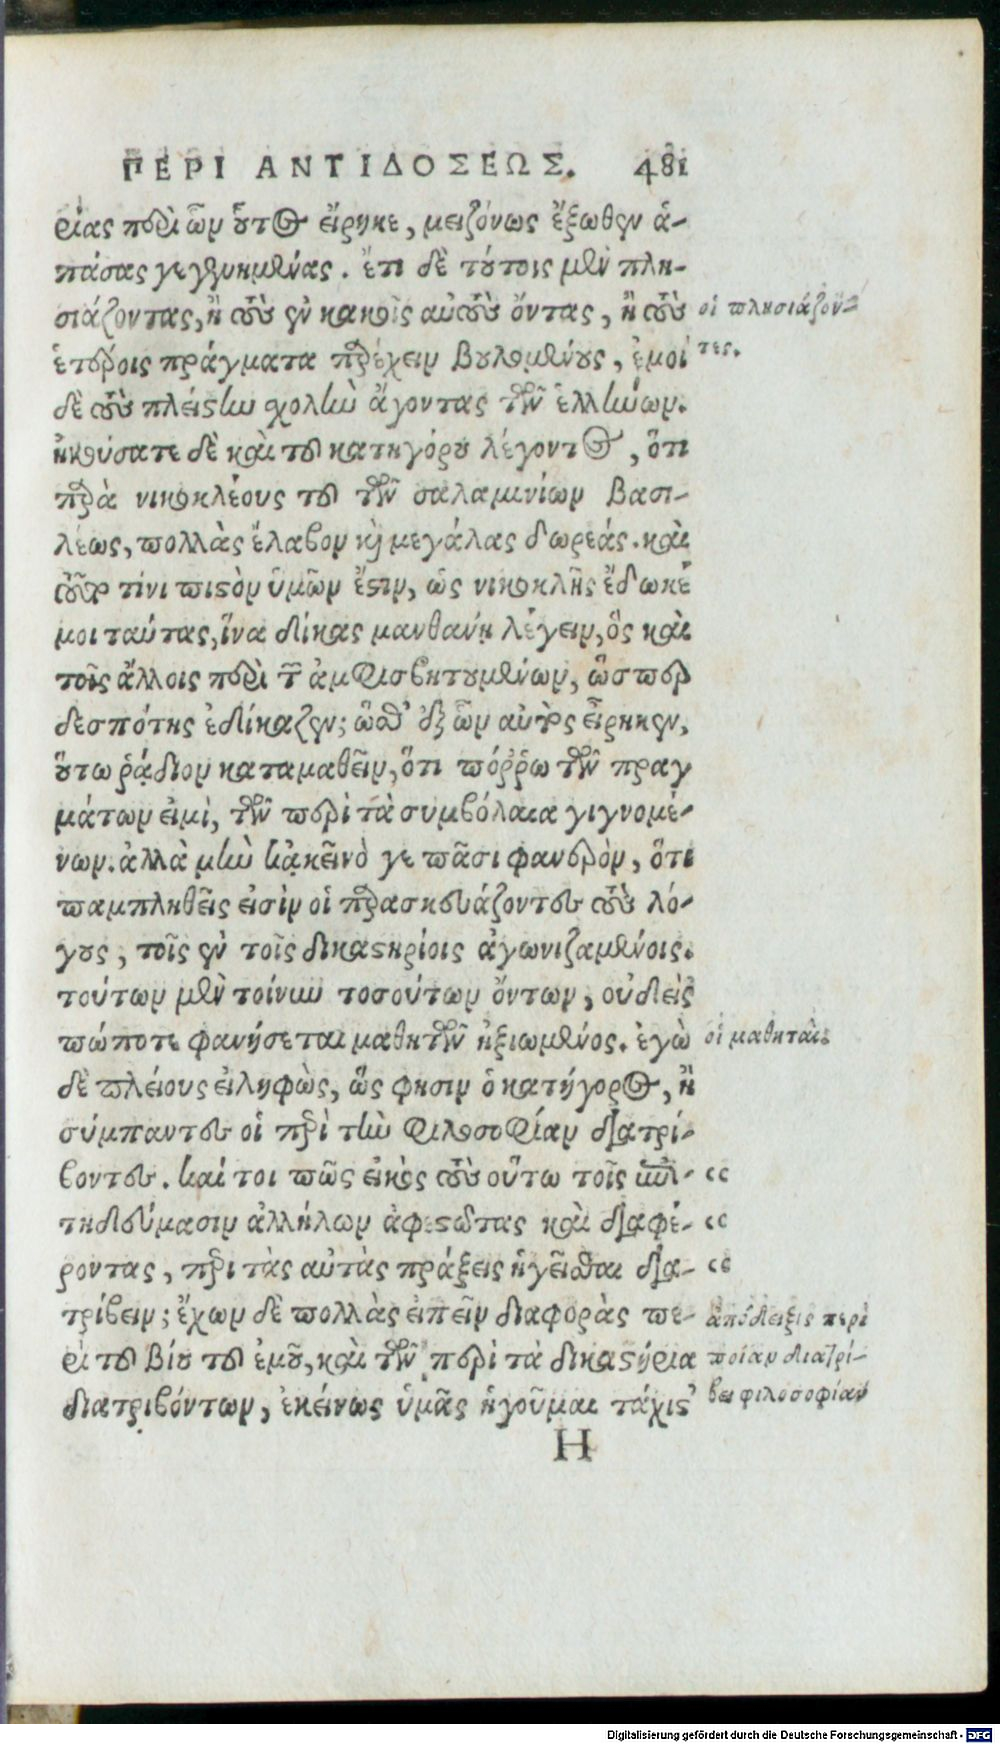 ΠΕΡΙ ΑΝΤΙΔΟΣΕΩΣ. 481
ρίας περὶ ὧν οὗτος εἴρηκε, μειζόνως ἔξωθεν ἁ-
πάσας γεγενημένας. ἔτι δὲ τούτοις μὲν πλη-
σιάζοντας, ἢ τοὺς ἐν κακοῖς αὐτοὺς ὄντας, ἢ τοὺς
ἑτέροις πράγματα παρέχειν βουλομένους, ἐμοὶ
δὲ τοὺς πλείστην σχολὴν ἄγοντας τῶν ἑλλήνων.
ἠκούσατε δὲ καὶ τοῦ κατηγόρου λέγοντος, ὅτι
παρὰ νικοκλέους τοῦ τῶν σαλαμινίων βασι-
λέως, πολλὰς ἔλαβον κὶ μεγάλας δωρεάς. καὶ
τοῦτο τίνι πιστὸν ὑμῶν ἔστιν, ὡς νικοκλῆς ἔδωκέ
μοι ταύτας, ἵνα δίκας μανθάνῃ λέγειν, ὃς καὶ
τοῖς ἄλλοις περὶ τῶν ἀμφισβητουμένων, ὥσπερ
δεσπότης ἐδίκαζεν; ὥσθ' ἐξ ὧν αὐτὸς εἴρηκεν,
οὕτω ῥᾴδιον καταμαθεῖν, ὅτι πόῤῥω τῶν πραγ
μάτων εἰμὶ, τῶν περὶ τὰ συμβόλαια γιγνομέ-
νων. ἀλλὰ μὴν κᾀκεῖνό γε πᾶσι φανερὸν, ὅτι
παμπληθεῖς εἰσὶν οἱ παρασκευάζοντες τοὺς λό-
γους, τοῖς ἐν τοῖς δικαστηρίοις ἀγωνιζαμένοις.
τούτων μὲν τοίνυν τοσούτων ὄντων, οὐδεὶς
πώποτε φανήσεται μαθητῶν ἠξιωμένος. ἐγὼ
δὲ πλείους εἰληφὼς, ὥς φησιν ὁ κατήγορος, ἢ
σύμπαντες οἱ περὶ τὴν φιλοσοφίαν διατρί-
βοντες. καί τοι πῶς εἰκὸς τοὺς οὕτω τοῖς ἐπι-
τηδεύμασιν ἀλλήλων ἀφεστῶτας καὶ διαφέ-
ροντας, περὶ τὰς αὐτὰς πράξεις ἡγεῖσθαι δια-
τρίβειν; ἔχων δὲ πολλὰς εἰπεῖν διαφορὰς πε-
ρὶ τοῦ βίου τοῦ ἐμοῦ, καὶ τῶν περὶ τὰ δικαστήρια
διατριβόντων, ἐκείνως ὑμᾶς ἡγοῦμαι τάχιστ'
Η
οἱ πλησιάζον-
τες.
οἱ μαθηταί.
‹‹
‹‹
‹‹
ἀπόδειξις περὶ
ποίαν διατρί-
βει φιλοσοφίαν
Digitalisierung gefördert durch die Deutsche Forschungsgemeinschaft - DFG